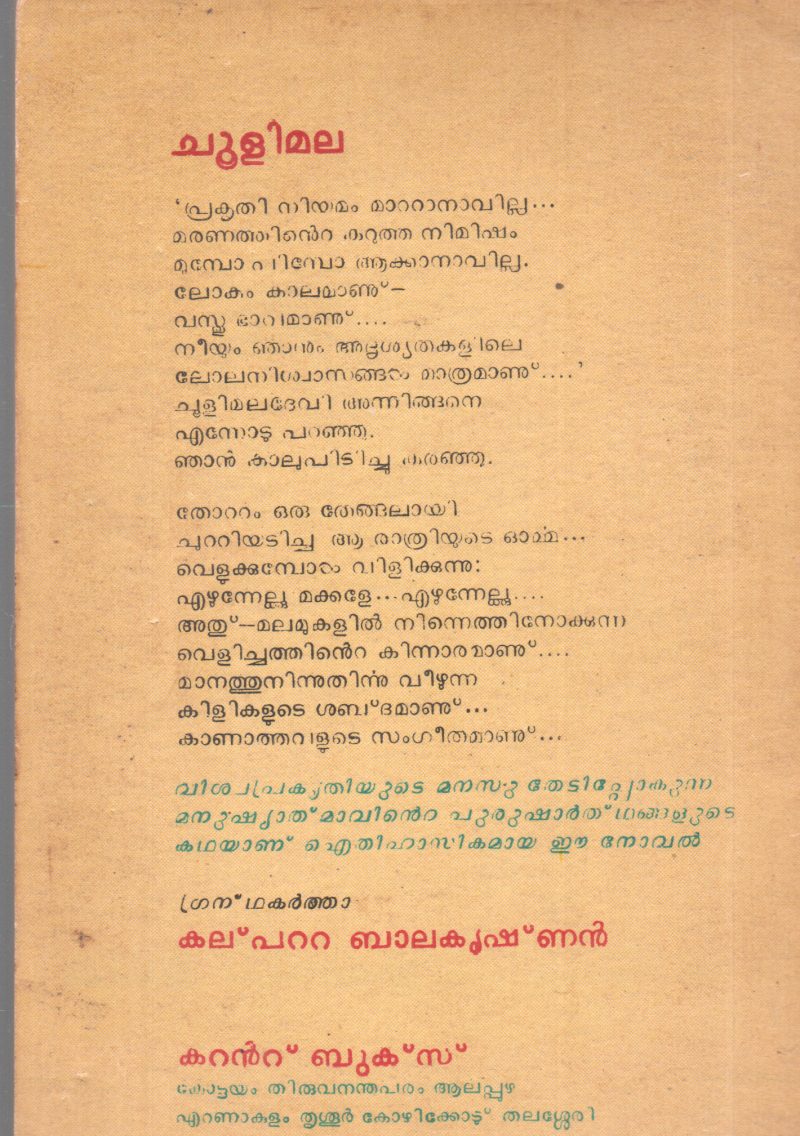 ചൂളിമല
‘പ്രകൃതി നിയമം മാററാനാവില്ല...
മരണത്തിൻെറ കറുത്ത നിമിഷം
മുമ്പോ പിമ്പോ ആക്കാനാവില്ല.
ലോകം കാലമാണു്—
വസ്തു ഭാവമാണു്....
നീയും ഞാനും അദൃശ്യതകളിലെ
ലോലനിശ്വാസങ്ങൾ മാത്രമാണു്....’
ചൂളിമലദേവി അന്നിങ്ങനെ
എന്നോടു പറഞ്ഞു.
ഞാൻ കാലുപിടിച്ചു കരഞ്ഞു.
തോററം ഒരു തേങ്ങലായി
ചുററിയടിച്ച ആ രാത്രിയുടെ ഓർമ്മ...
വെളുക്കുമ്പോൾ വിളിക്കുന്നു:
എഴുന്നേല്ലൂ മക്കളേ...എഴുന്നേല്ലൂ....
അതു്—മലമുകളിൽ നിന്നെത്തിനോക്കുന്ന
വെളിച്ചത്തിൻെറ കിന്നാരമാണു്....
മാനത്തുനിന്നുതിർന്നു വീഴുന്ന
കിളികളുടെ ശബ്ദമാണു്...
കാണാത്തവളുടെ സംഗീതമാണു്...
വിശ്വപ്രകൃതിയുടെ മനസു തേടിപ്പോകുന്ന
മനുഷ്യാത്മാവിൻെറ പുരുഷാർത്ഥങ്ങളുടെ
കഥയാണ് ഐതിഹാസികമായ ഈ നോവൽ
ഗ്രന്ഥകർത്താ
കല്പററ ബാലകൃഷ്ണൻ
കറൻറ് ബുക്സ്
കോട്ടയം തിരുവനന്തപരം ആലപ്പുഴ
എറണാകുളം തൃശൂർ കോഴിക്കോടു് തലശ്ശേരി